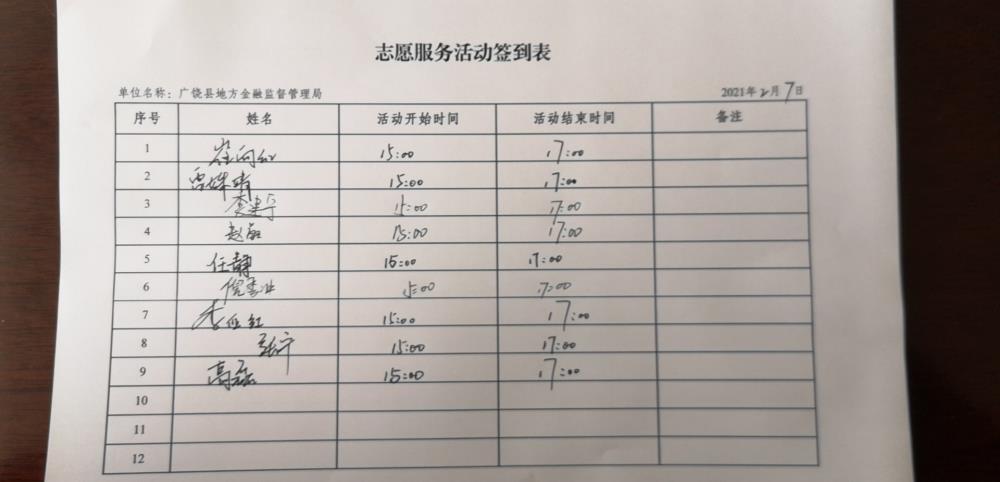 志愿服务活动签到表
单位名称：广饶县地方金融监督管理局 2021年2月7日
序号 姓名 活动开始时间 活动结束时间 备注
1 崔向红 15:00 17:00
2 15:00 17:00
3 李建宁 15:00 17:00
4 赵磊 15:00 17:00
5 任静 15:00 17:00
6 15:00 17:00
7 李红 15:00 17:00
8 张宁 15:00 17:00
9 高磊 15:00 17:00
10
11
12